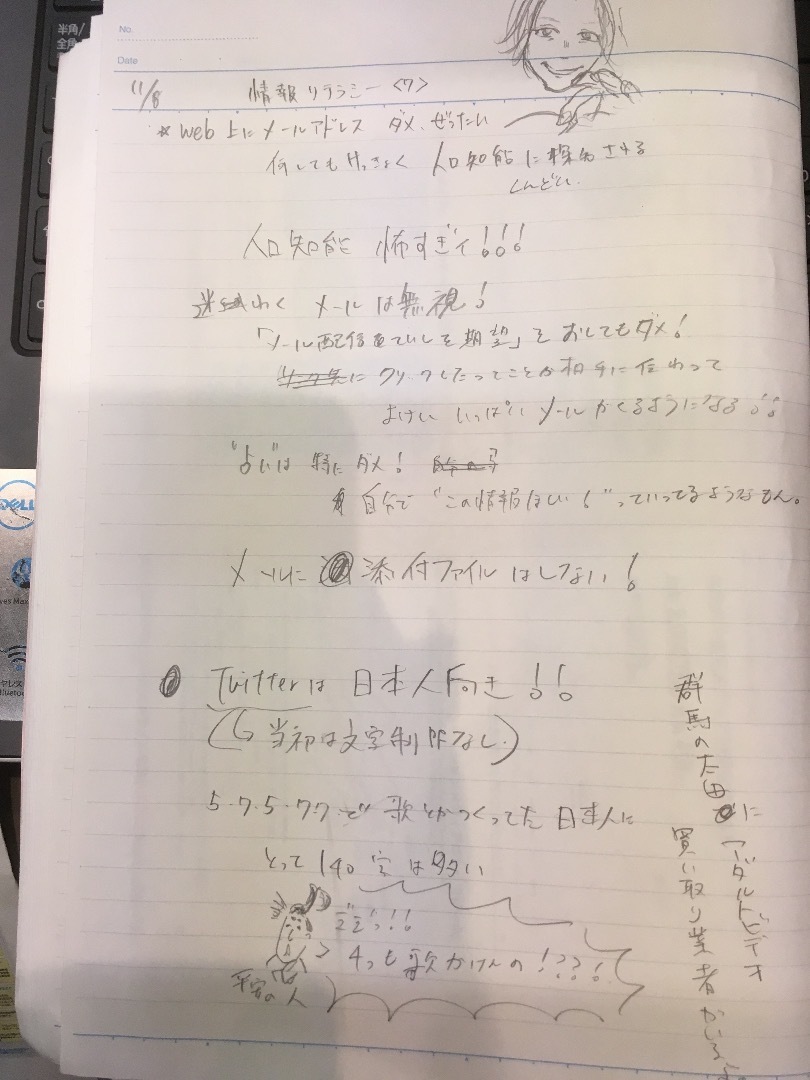 半角/
全角
No.
Date
11/8 情報リテラシー〈7〉
☆ web上にメールアドレス ダメ、ぜったい
何してもけっきょく 人口知能に探知される
しんどい
人口知能 怖すぎィ!!!
迷わく メールは無視!
「メール配信ていしを期望」をおしてもダメ!
クリックしたってことが相手に伝わって
よけい いっぱい メールがくるようになる!!
"占い"は 特にダメ!
自分で "この情報ほしい!"っていってるようなもん。
メールに 添付ファイル はしない!
DELL
Twitterは 日本人向き!!
(↳当初は文字制限なし)
5・7・5・7・7で 歌とかつくってた 日本人に
とって 140字は多い
4つも歌かけんの!??!
平安の人
群馬の太田に
アダルトビデオ
買い取り業者が